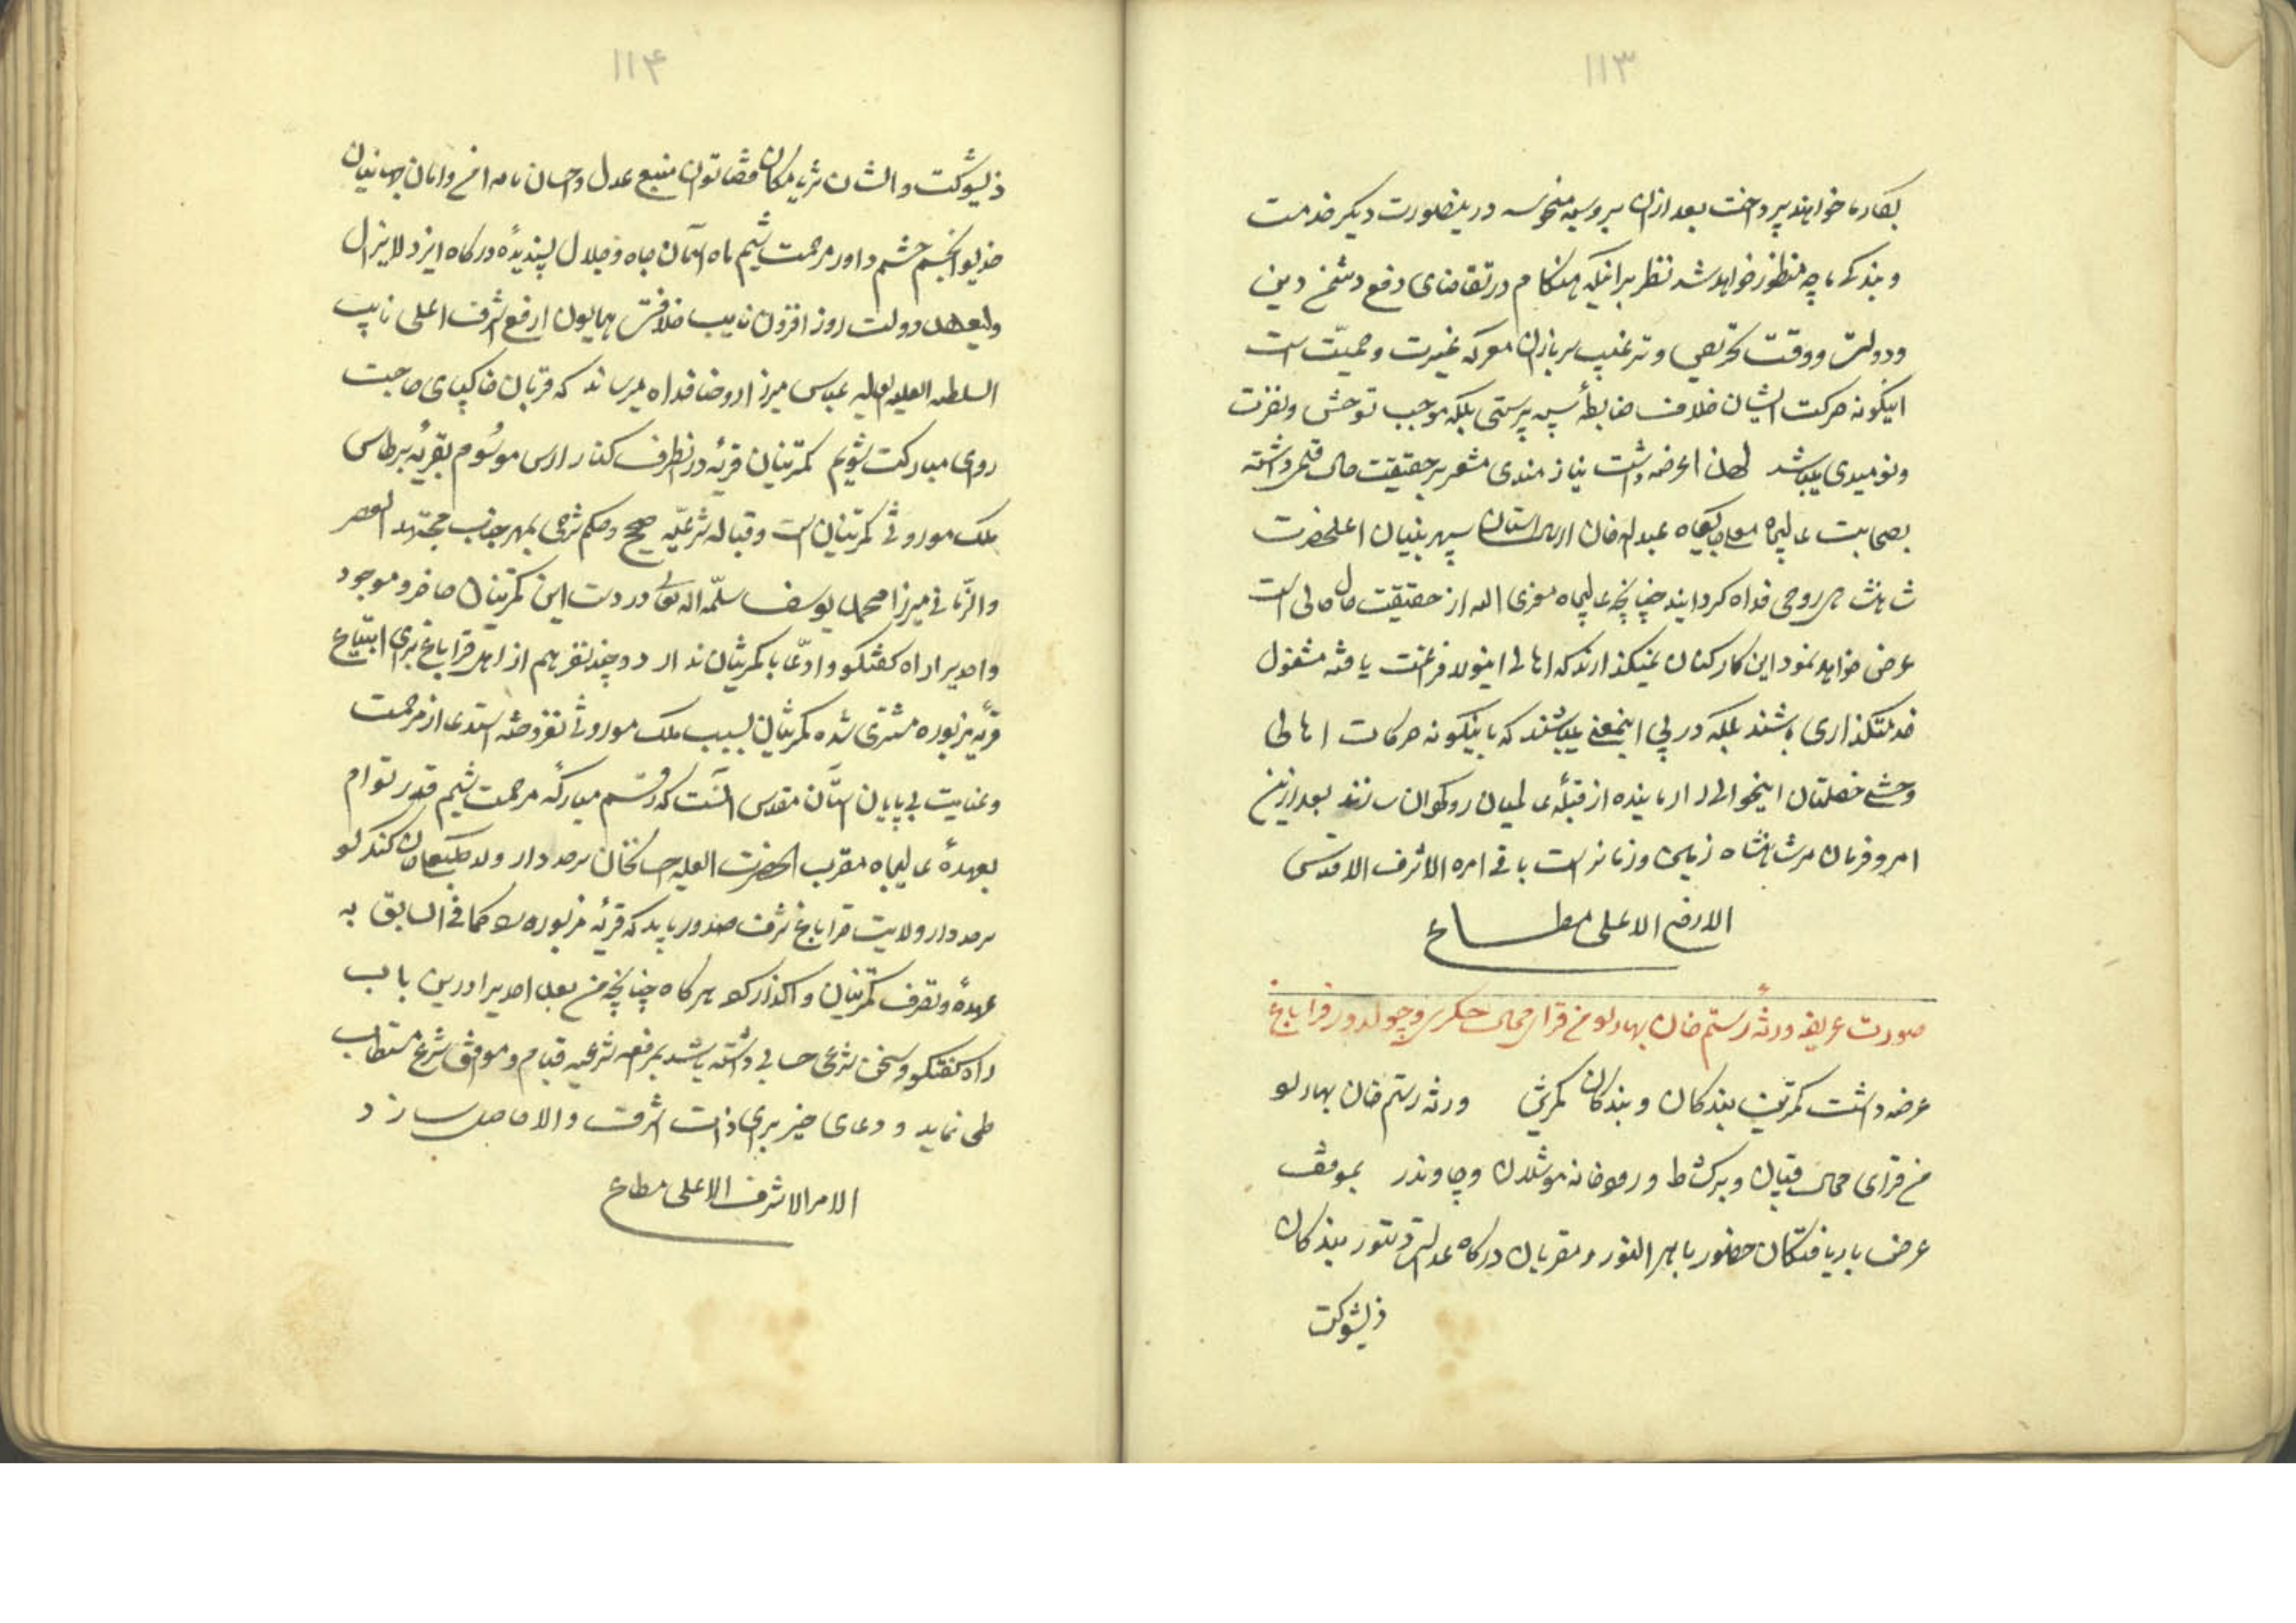 ۱۱۳
بکار ما خواهند پرداخت بعد از آن بروسیه منحوسه در اینصورت دیگر خدمت
و بندکی ما چه منظور خواهد شد نظر بر اینکه هنکام در تقاضای دفع دشمن دین
و دولت و وقت تحریص و ترغیب سربازان معرکه غیرت و حمیّت است
اینکونه حرکت ایشان خلاف ضابطهٔ سپه پرستی بلکه موجب توحش و نفرت
و نومیدی میباشد لهذا عرضه داشت نیازمندی مشعر بر حقیقت حال قلمی داشته
بصحابت عالیجاه عبدالله خان سپهر بنیان اعلیحضرت
شاهنشاهی روحی فداه کردانید چنانچه عالیجاه معزی الیه از حقیقت حال حالی است
عرض خواهد نمود این کارکنان نمیکذارند که اهالی اینولا فراغت یافته مشغول
خدمتکذاری باشند بلکه در پی اینمعنی میباشند که باینکونه حرکات اهالی
وحشی خصلتان اینحوالی را رمانیده از قبلهٔ عالمیان روکردان سازند بعد ازین
امر و فرمان مر شاهنشاه زمین و زمانراست باقی امره الاشرف الاقدس
الارفع الاعلی مطاع
صورت عریضه ورثهٔ رستم خان بهارلو من قرای محال جکری و چولدور قراباغ
عرضه داشت کمترین بندکان و بندکان کمترین ورثه رستم خان بهارلو
من قرای محال قپان و برکشاط و و چاوندر بموقف
عرض باریافتکان حضور باهر النور و مقربان درکاه عدالت دستور بندکان
ذیشوکت
۱۱۴
ذیشوکت والشان ثریا مکان قضا توان منبع عدل و احسان مایه امن و امان جهانیان
خدیو انجم حشم داور مرحمت شیم ماه آسمان جاه و جلال پسندیدهٔ درکاه ایزد لایزال
ولیعهد دولت روز افزون نایب خلافت همایون ارفع اشرف اعلی نایب
السلطنه العلیه العالیه عباس میرزا روحنا فداه میرساند که قربان خاکپای صاحبت
روی مبارکت شویم کمترینان قریهٔ در انطرف کنار ارس موسُوم بقریهٔ برطاس
ملک موروثی کمترینان است و قبالهٔ شرعیّه صحیح و حکم شرعی بمهر جناب مجتهد العصر
والزمانی میرزا محمد یوسف سلّمه الله تعالی در دست این کمترینان حاضر و موجود
و احدیرا راه کفتکو و ادعّا با کمترینان ندارد و چند نفر هم از اهل قراباغ برای ابتیاع
قریه مزبوره مشتری شده کمترینان بسبب ملک موروثی نفروخته استدعا از مرحمت
و عنایت بی پایان آستان مقدس آنست که رقم مبارکهٔ مرحمت شیم قدر توام
بعهدهٔ عالیجاه مقرب الحضرت العلیه حسنخان سرحددار ولد کندلو
سرحددار ولایت قراباغ شرف صدور یابد که قریهٔ مزبوره را کما فی السابق به
عهدهٔ و تصرف کمترینان واکذارد هرکاه چنانچه من بعد احدیرا درین باب
راه کفتکو و سخن شرعی حسابی داشته باشد بمرافعه شرعیه قیام و موافق شرع مستطاب
طی نماید و دعای خیر برای ذات اشرف والا حاصل سازد
الامر الاشرف الاعلی مطاع